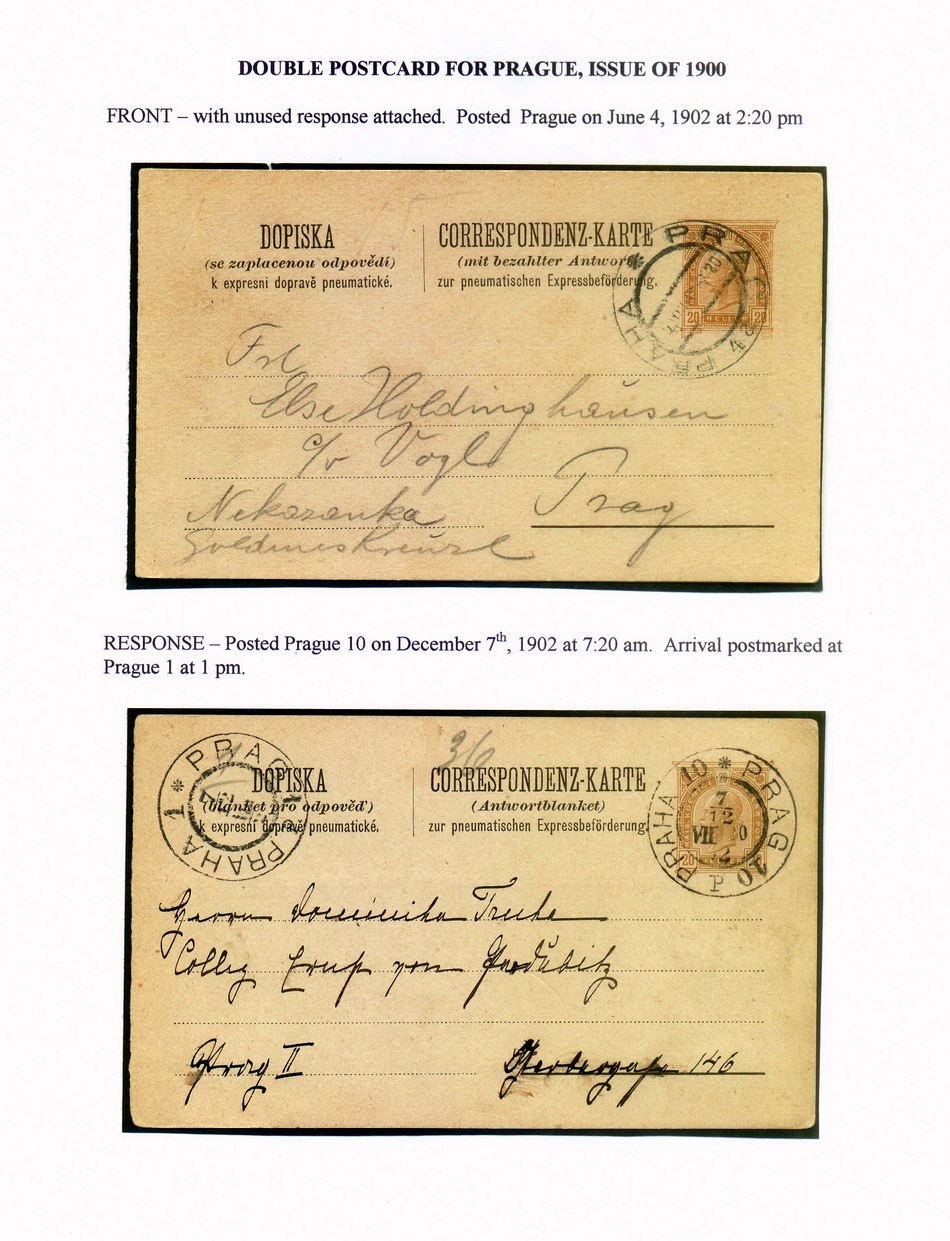 DOUBLE POSTCARD FOR PRAGUE, ISSUE OF 1900
FRONT – with unused response attached. Posted Prague on June 4, 1902 at 2:20 pm
DOPISKA
(se zaplacenou odpovědí)
k expresni dopravě pneumatické.
CORRESPONDENZ-KARTE
(mit bezahlter Antwort)
zur pneumatischen Expressbeförderung.
PRAG
PRAHA
20 HELLER 20
Frl
Else Holdinghausen
c/o Vogl
Nekazanka
Prag
Goldenes Kreuzl
RESPONSE – Posted Prague 10 on December 7th, 1902 at 7:20 am. Arrival postmarked at
Prague 1 at 1 pm.
PRAG 1
PRAHA 1
DOPISKA
(blanket pro odpověď)
k expresní dopravě pneumatické.
36
CORRESPONDENZ-KARTE
(Antwortblanket)
zur pneumatischen Expressbeförderung.
PRAG 10
PRAHA 10
7
12
VII 20
2
P
20
Herrn
von Pardubitz
Prag II
146